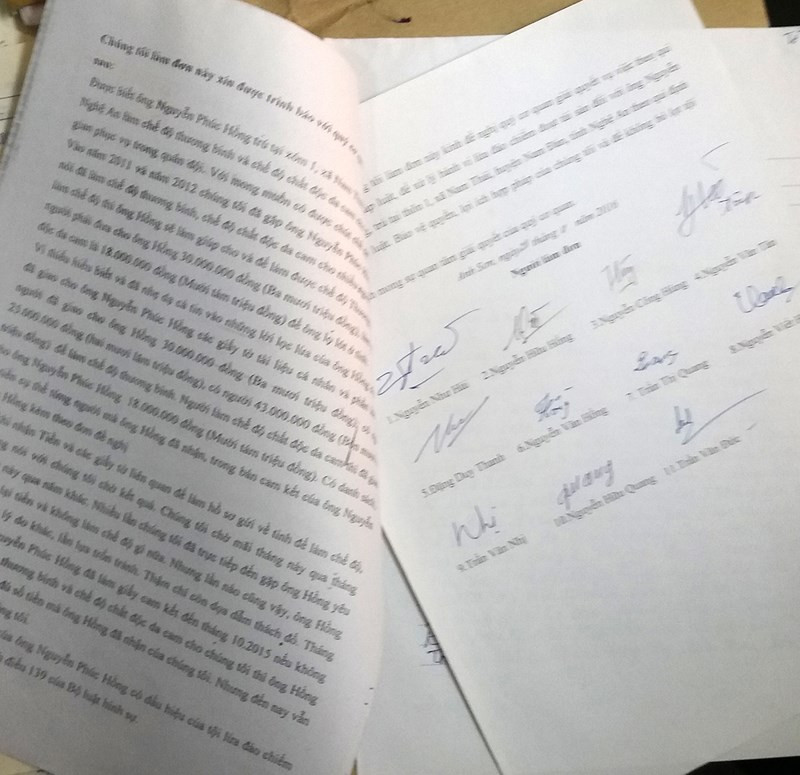 Chúng tôi làm đơn này xin được trình báo với quý cơ
sau:
Được biết ông Nguyễn Phúc Hồng trú tại xóm 1, xã Nam
Nghệ An làm chế độ thương binh và chế độ chất độc da cam
gian phục vụ trong quân đội. Với mong muốn có được chút
Vào năm 2011 và năm 2012 chúng tôi đã gặp ông Nguyễn Phúc
nói đã làm chế độ thương binh, chế độ chất độc da cam cho nhiều
làm chế độ thì ông Hồng sẽ làm giúp cho và để làm được chế độ Thương
người phải đưa cho ông Hồng 30.000.000 đồng (Ba mươi triệu đồng),
độc da cam là 18.000.000 đồng (Mười tám triệu đồng) để ông lo lót ở
Vì thiếu hiểu biết và đã nhẹ dạ cả tin vào những lời lọc lừa của ông Hồng
đã giao cho ông Nguyễn Phúc Hồng các giấy tờ tài liệu cá nhân và
người đã giao cho ông Hồng 30.000.000 đồng (Ba mươi triệu đồng), có
25.000.000 đồng (hai mươi lăm triệu đồng), có người 43.000.000 đồng
triệu đồng) để làm chế độ thương binh. Người làm chế độ chất độc da cam đã
ông Nguyễn Phúc Hồng 18.000.000 đồng (Mười tám triệu đồng). Có danh sách
tiền cụ thể từng người mà ông Hồng đã nhận, trong bản cam kết của ông Nguyễn
Hồng kèm theo đơn đề nghị
nhận Tiền và các giấy tờ liên quan để làm hồ sơ gửi về tỉnh để làm chế độ,
nói với chúng tôi chờ kết quả. Chúng tôi chờ mãi tháng này qua tháng
này qua năm khác. Nhiều lần chúng tôi đã trực tiếp đến gặp ông Hồng yêu
lại tiền và không làm chế độ gì nữa. Nhưng lần nào cũng vậy, ông Hồng
lý do khác, lần lựa trốn tránh. Thậm chí còn dọa dẫm thách đố. Tháng
Phúc Hồng đã làm giấy cam kết đến tháng 10.2015 nếu không
thương binh và chế độ chất độc da cam cho chúng tôi thì ông Hồng
đủ số tiền mà ông Hồng đã nhận của chúng tôi. Nhưng đến nay vẫn
tôi.
của ông Nguyễn Phúc Hồng có dấu hiệu của tội lừa đảo chiếm
điều 139 của Bộ luật hình sự.
tôi làm đơn này kính đề nghị quý cơ quan giải quyết vụ việc theo qui
luật, để xử lý hành vi lừa đảo chiếm đoạt tài sản đối với ông Nguyễn
trú tại thôn 1, xã Nam Thái, huyện Nam Đàn, tỉnh Nghệ An theo qui định
luật. Bảo vệ quyền, lợi ích hợp pháp của chúng tôi và để không bỏ lọt tội
mong sự quan tâm giải quyết của quý cơ quan.
Anh Sơn, ngày tháng năm 2016
Người làm đơn
1.Nguyễn Như Hải 2.Nguyễn Hữu Hồng 3.Nguyễn Công Hùng 4.Nguyễn Văn Tân
5.Đặng Duy Thanh 6.Nguyễn Văn Hồng 7. Trần Thị Quang 8.Nguyễn Viết
Nhị quang
9.Trần Văn Nhị 10.Nguyễn Hữu Quang 11.Trần Văn Đức